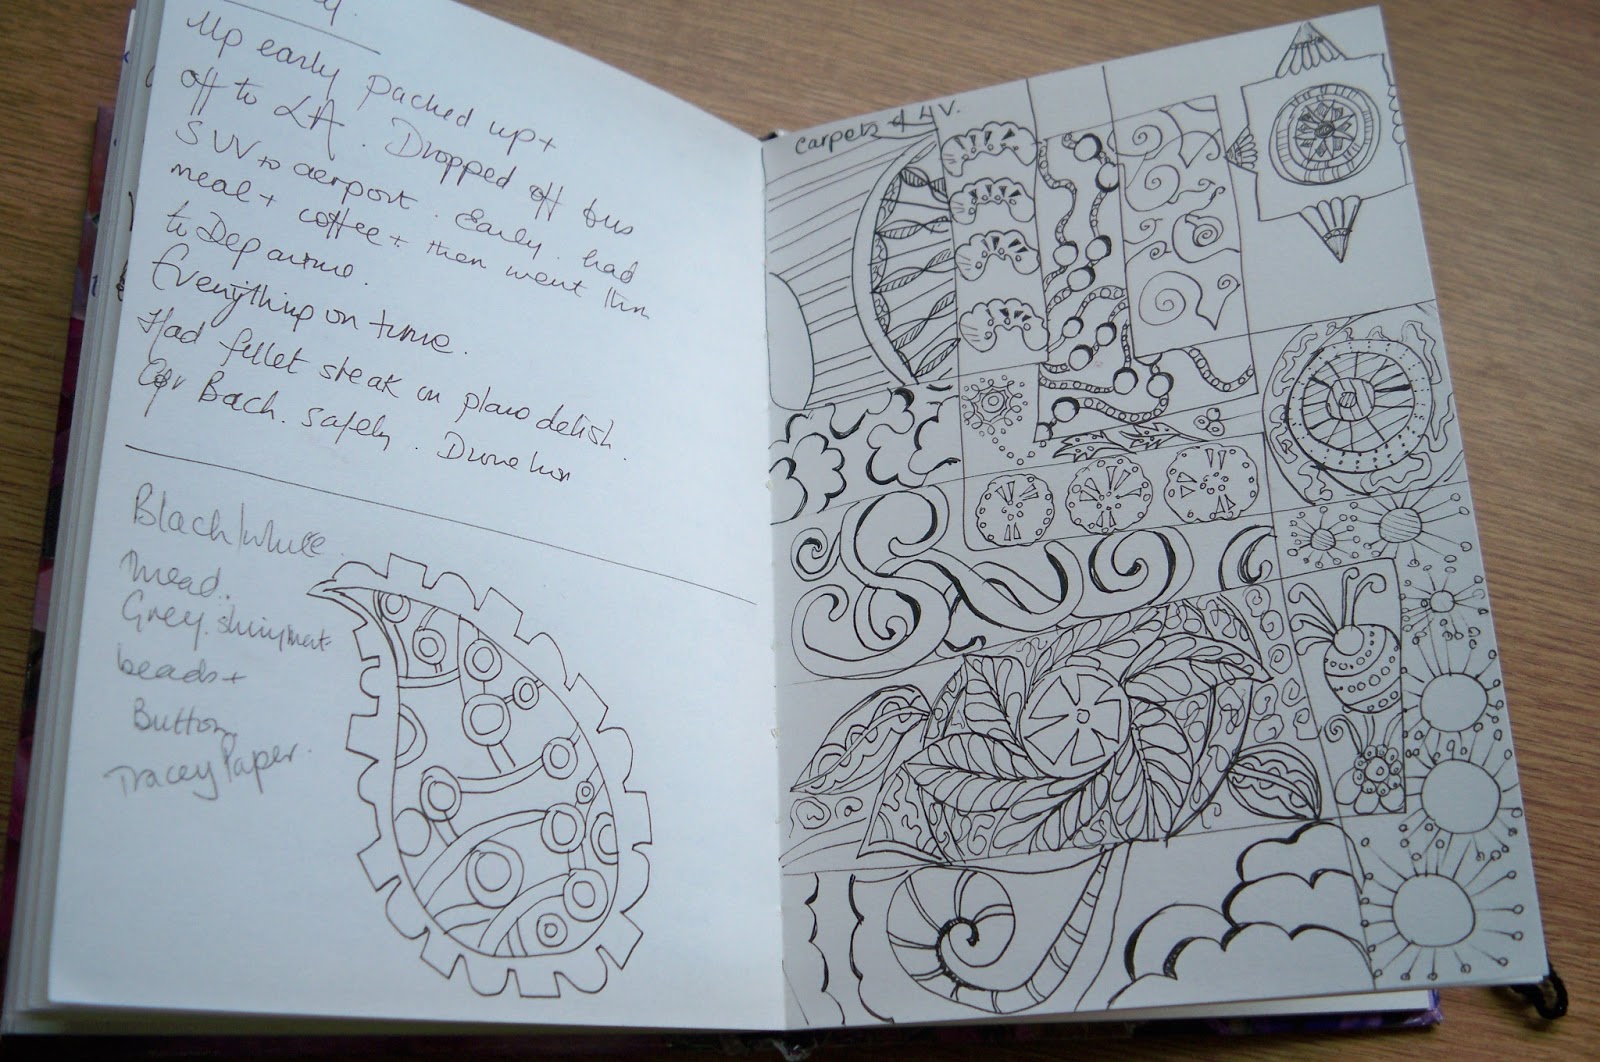 Up early packed up +
off to LA. Dropped off bus
SUV to aerport. Early. had
meal + coffee + then went thru
to Departure.
Everything on time.
Had fillet steak on plane delish.
Bach. safely.
Black/white.
Grey. shiny
beads +
Button
Tracey Paper.
Carpets of LV.